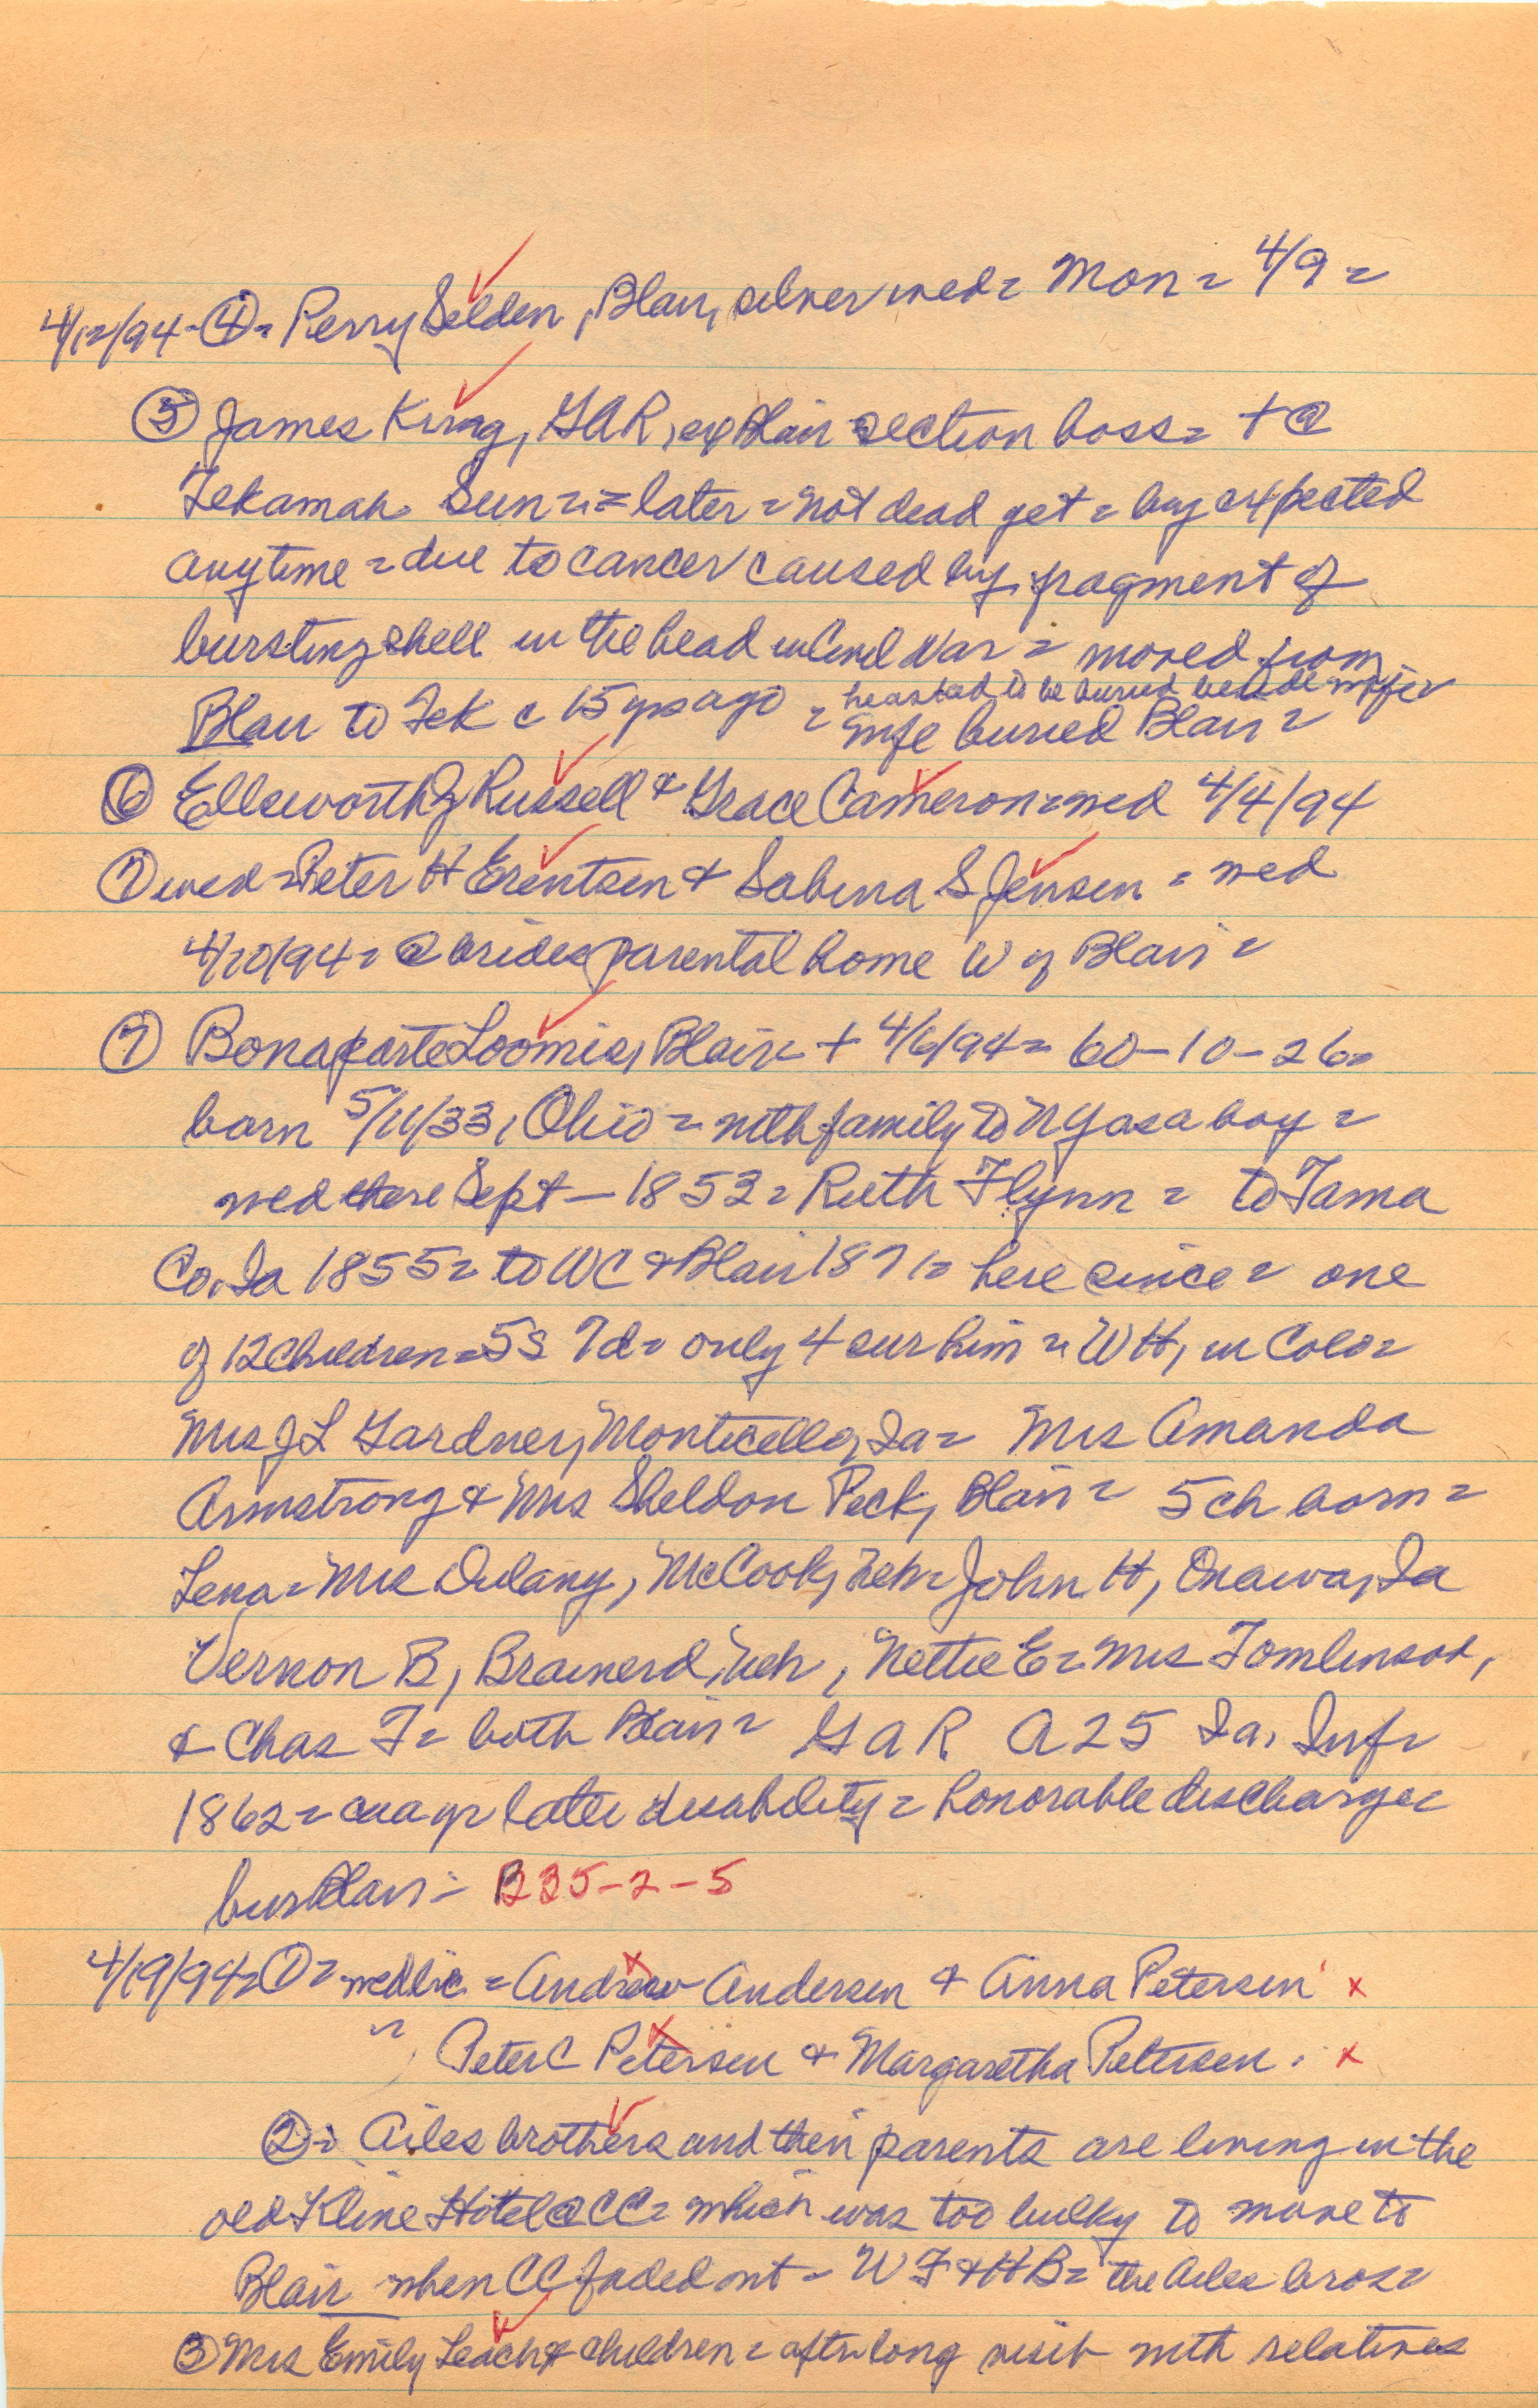 4/12/94 - ④ = Perry Selden, Blair, silver wed = Mon = 4/9 =
⑤ James King, GAR, ex Blair section boss = + @
Tekamah Sun = = later = not dead yet = buy expected
anytime = due to cancer caused by fragment of
bursting shell in the head in Civil War = moved from
he asked to be buried beside wife
Blair to Tek c 15 yrs ago = wife buried Blair =
⑥ Ellsworth J Russell & Grace Cameron = wed 4/4/94
⑦ wed = Peter H Erentsen & Sabina S Jensen = wed
4/10/94 = @ brides parental home W of Blair =
⑦ Bonaparte Loomis, Blair + 4/6/94 = 60-10-26 =
born 5/11/33, Ohio = with family to NY as a boy =
wed there Sept - 1853 = Ruth Flynn = to Tama
Co, Ia 1855 = to WC & Blair 1871 = here since = one
of 12 children = 5s 7d = only 4 sur him = WH, in Colo =
Mrs J L Gardner, Monticello, Ia = Mrs Amanda
Armstrong & Mrs Sheldon Peck, Blair = 5 ch born =
Lena = Mrs Dulany, McCook, Neb = John H, Onawa, Ia
Vernon B, Brainerd, Neb, Nettie E = Mrs Tomlinson,
& Chas F = both Blair = GAR A 25 Ia, Inf =
1862 = a yr later disability = honorable discharge =
bur Blair = B35-2-5
4/19/94 = ① = wed lic = Andrew Andersen & Anna Petersen x
" Peter C Petersen & Margaretha Petersen. x
② = Ailes brothers and their parents are living in the
old Kline Hotel @ CC = which was too bulky to move to
Blair when CC faded out = W F & H B = the Ailes bros =
③ Mrs Emily Leach & children = after long visit with relatives